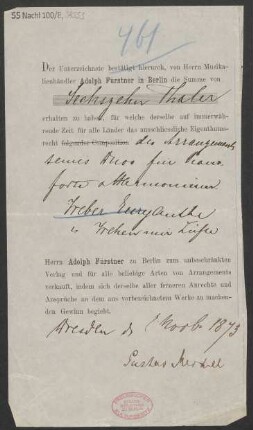 55 Nachl 100/B,
461
Der Unterzeichnete bestätigt hiermit, von Herrn Musika-
lienhändler Adolph Fürstner in Berlin die Summe von
Sechszehn Thaler
erhalten zu haben, für welche derselbe auf immerwäh-
rende Zeit, für alle Länder das ausschliessliche Eigenthums-
recht folgender Composition des Arrangements
eines Duos für Piano
forte u Harmonium
Weber Euryanthe
Herrn Adolph Fürstner zu Berlin zum unbeschränkten
Verlag und für alle beliebige Arten von Arrangements
verkauft, indem sich derselbe aller ferneren Anrechte und
Ansprüche an dem aus vorbezeichnetem Werke zu machen-
den Gewinn begiebt.
Dresden d. Novb 1873
Gustav Merkel